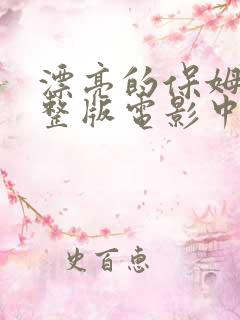 漂亮的保姆
整版电影中
史百惠